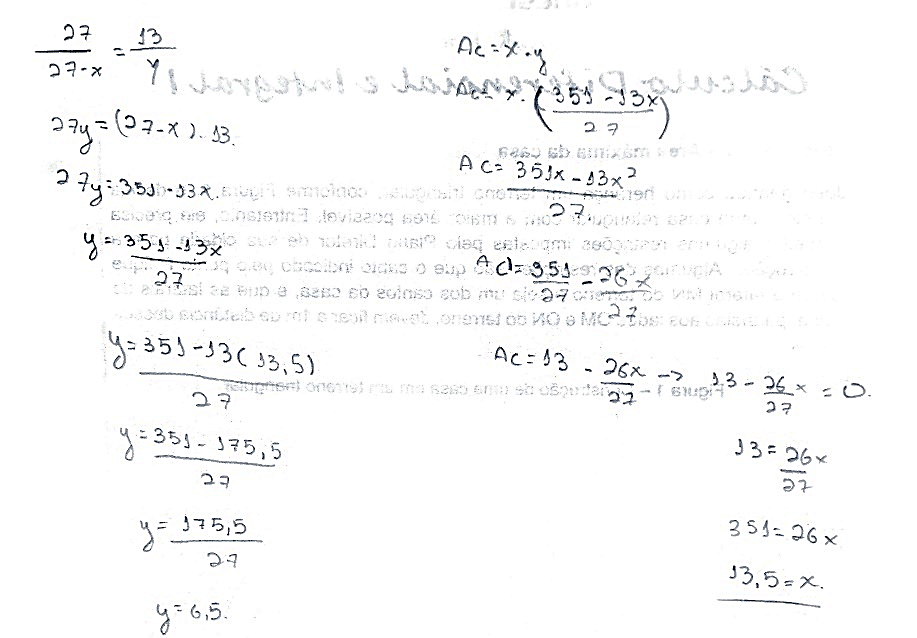 27/(27-x) = 13/y
27y=(27-x).13.
27y=351-13x.
y=(351-13x)/27
y=(351-13(13,5))/27
y=(351-175,5)/27
y=175,5/27
y=6,5.
Ac=x.y
Ac=x.((351-13x)/27)
Ac=(351x-13x²)/27
Ac'=351/27-26x/27
Ac=13-26x/27→13-26x/27=0.
13=26x/27
351=26x
13,5=x.
Cálculo Diferencial e Integral 1
máxima da casa
terreno triangular, conforme Figura
casa retangular com a maior área possível. Entretanto, ele precisa
restrições impostas pelo Plano Diretor de sua cidade
que o canto indicado pelo
um dos cantos da casa, e que as laterais da
aos lados OM e ON do terreno, devem ficar a 1m de distância
Figura 1 – de uma casa em um terreno triangular